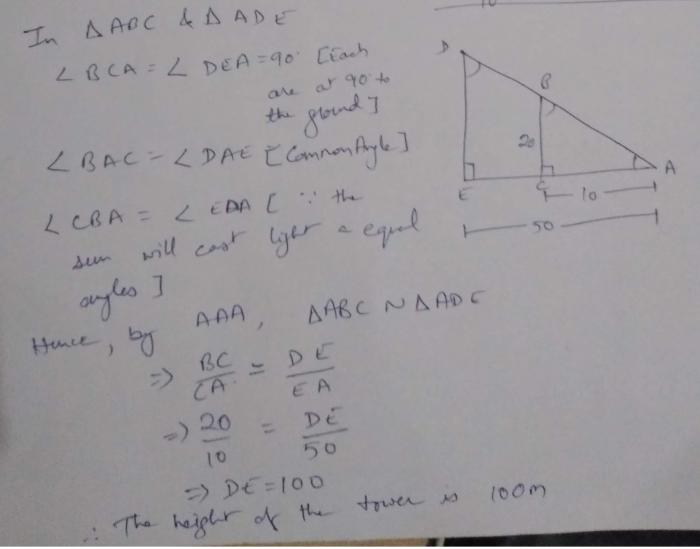 In Δ ABC & Δ ADE
∠ BCA = ∠ DEA = 90° [Each
are at 90° to
the ground]
∠ BAC = ∠ DAE [Common Angle]
∠ CBA = ∠ EDA [∵ the
sun will cast light a equal
angles]
Hence, by AAA, ΔABC ~ ΔADE
⇒ BC/CA = DE/EA
⇒ 20/10 = DE/50
⇒ DE = 100
∴ The height of the tower is 100m
D
B
20
A
E
C
10
50